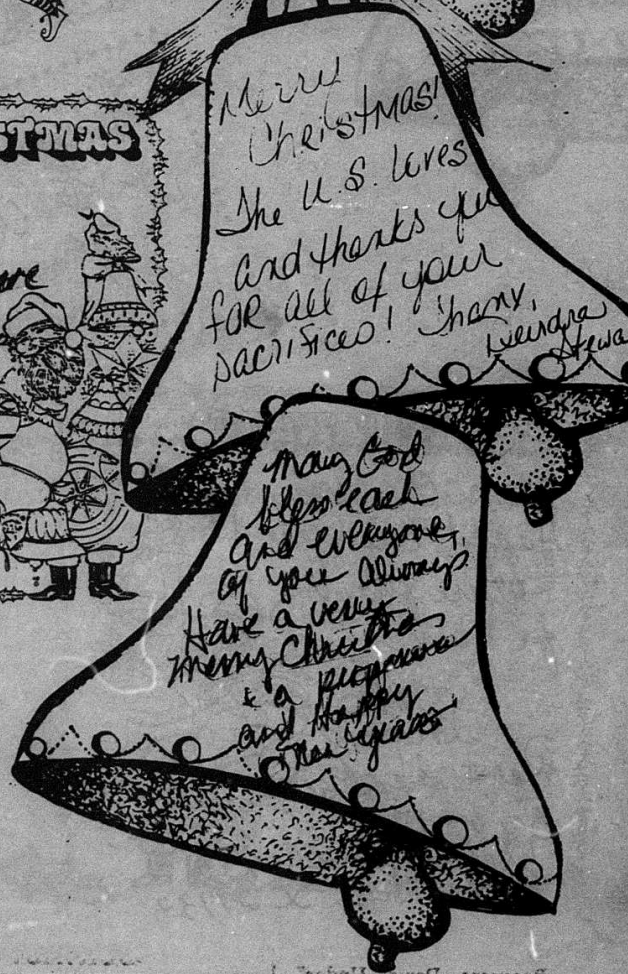 STMAS
Merry
Christmas!
The U.S. loves
and thanks you
for all of your
sacrifices! Thanx,
Stewa
May God
bless each
and everyone
of you always.
Have a very
merry Christmas
& a prosperous
and Happy
New Years